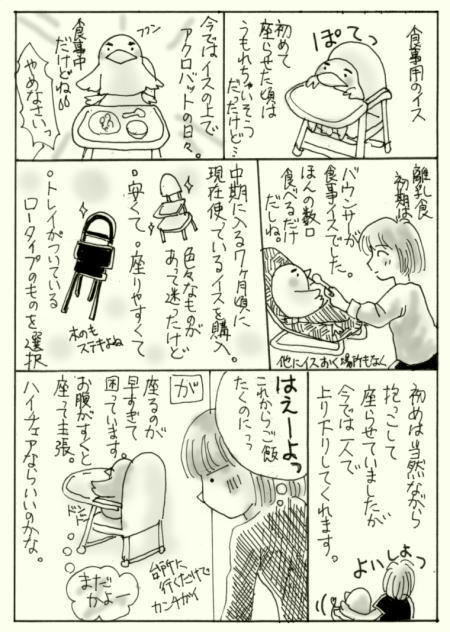 食事用のイス
ぽてっ
初めて
座らせた頃は
うもれちゃいそう
だったけど…
今ではイスの上で
アクロバットの日々。
フフン
食事中
だけどねöö
やめなさいっ
離乳食
初期は
バウンサーが
食事イスでした。
ほんの数口
食べるだけ
だしね。
他にイスおく場所もなく
中期に入る7ヶ月頃に
現在使っているイスを購入。
色々なものが
あって迷ったけど
・安くて・座りやすくて
・トレイがついている
ロータイプのものを選択
木のも
ステキよね
初めは当然ながら
抱っこして
座らせていましたが
今では一人で
上り下りしてくれます。
よいしょっ
はえーよっ
これからご飯
たくのにっっ
が
座るのが
早すぎて
困っています。
お腹がすくと
座って主張。
ハイチェアならいいのかな。
ドンドン
台所に
行くだけで
カンチガイ
まだ
かよー